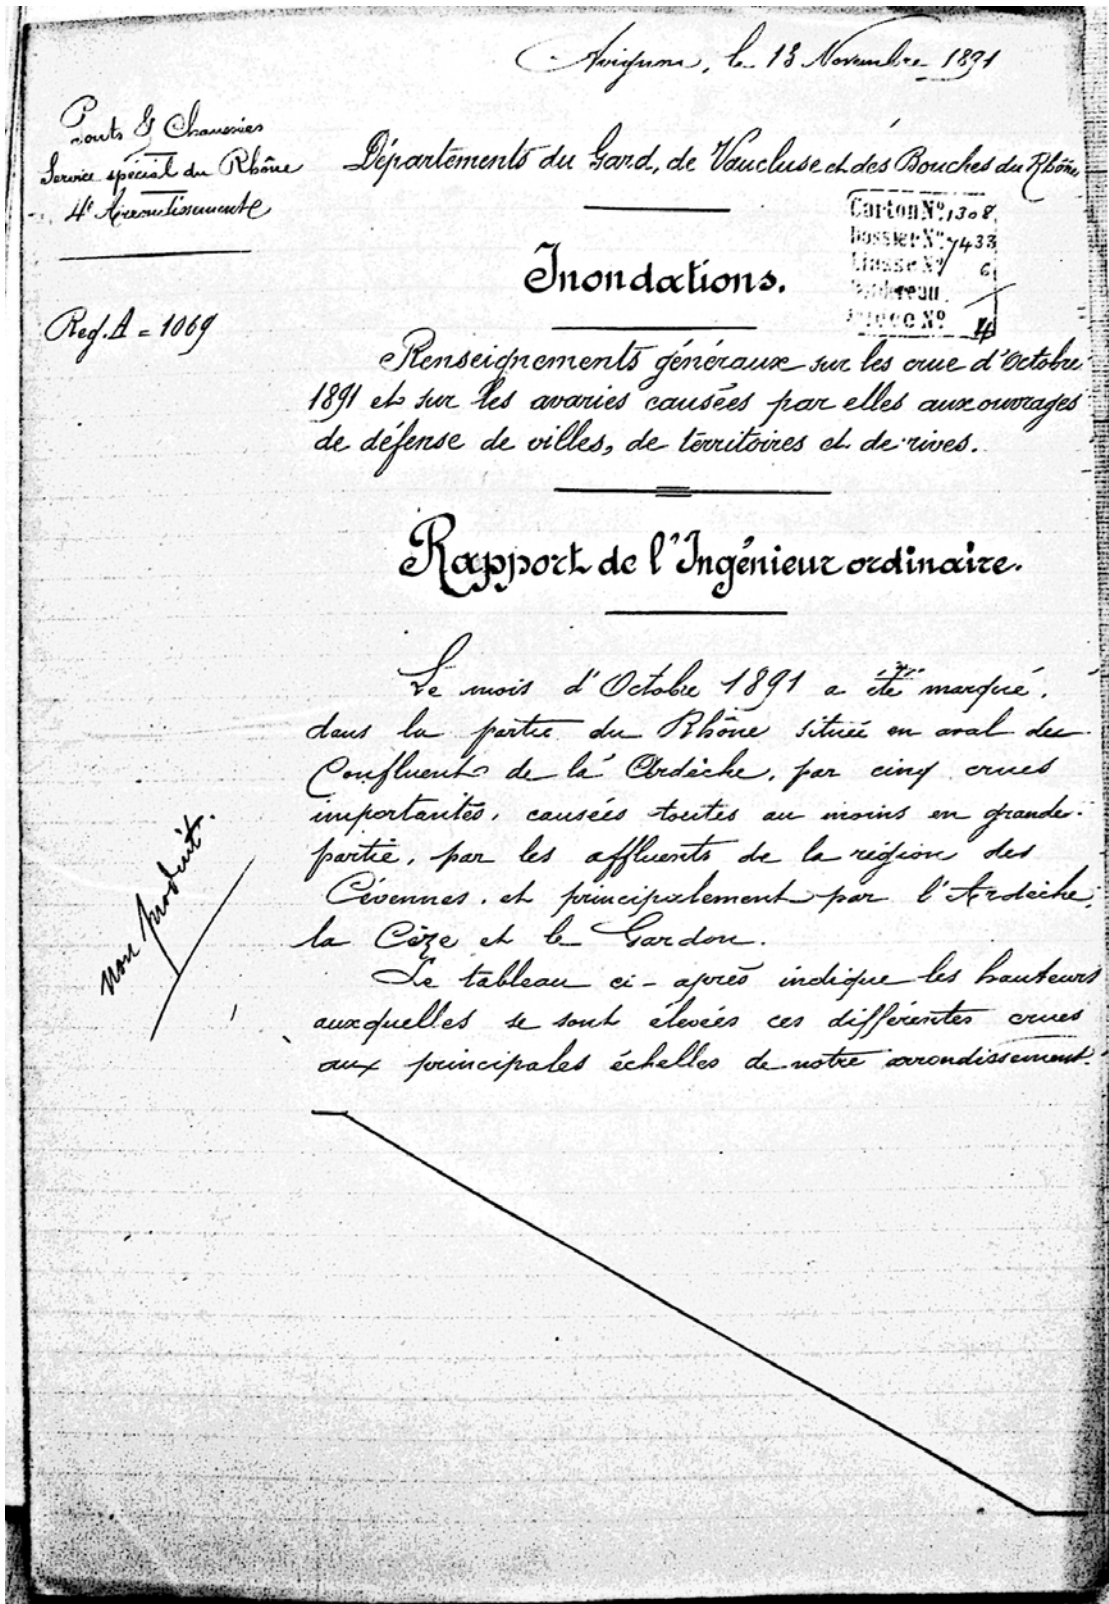 Avignon, le 13 Novembre 1891
Ponts & Chaussées
Service spécial du Rhône
4e Arrondissement
Départements du Gard, de Vaucluse et des Bouches du Rhône
Carton N° 1308
Dossier N° 7433
Liasse N° 6
Bordereau
Pièce N° 4
Inondations.
Reg. A = 1069
Renseignements généraux sur les crue d'Octobre
1891 et sur les avaries causées par elles aux ouvrages
de défense de villes, de territoires et de rives.
Rapport de l'Ingénieur ordinaire.
Le mois d'Octobre 1891 a été marqué,
dans la partie du Rhône située en aval du
Confluent de la Ardèche, par cinq crues
importantes, causées toutes au moins en grande
partie, par les affluents de la région des
Cévennes, et principalement par l'Ardèche,
la Cèze et le Gardon.
non produit.
Le tableau ci-après indique les hauteurs
auxquelles se sont élevées ces différentes crues
aux principales échelles de notre arrondissement.